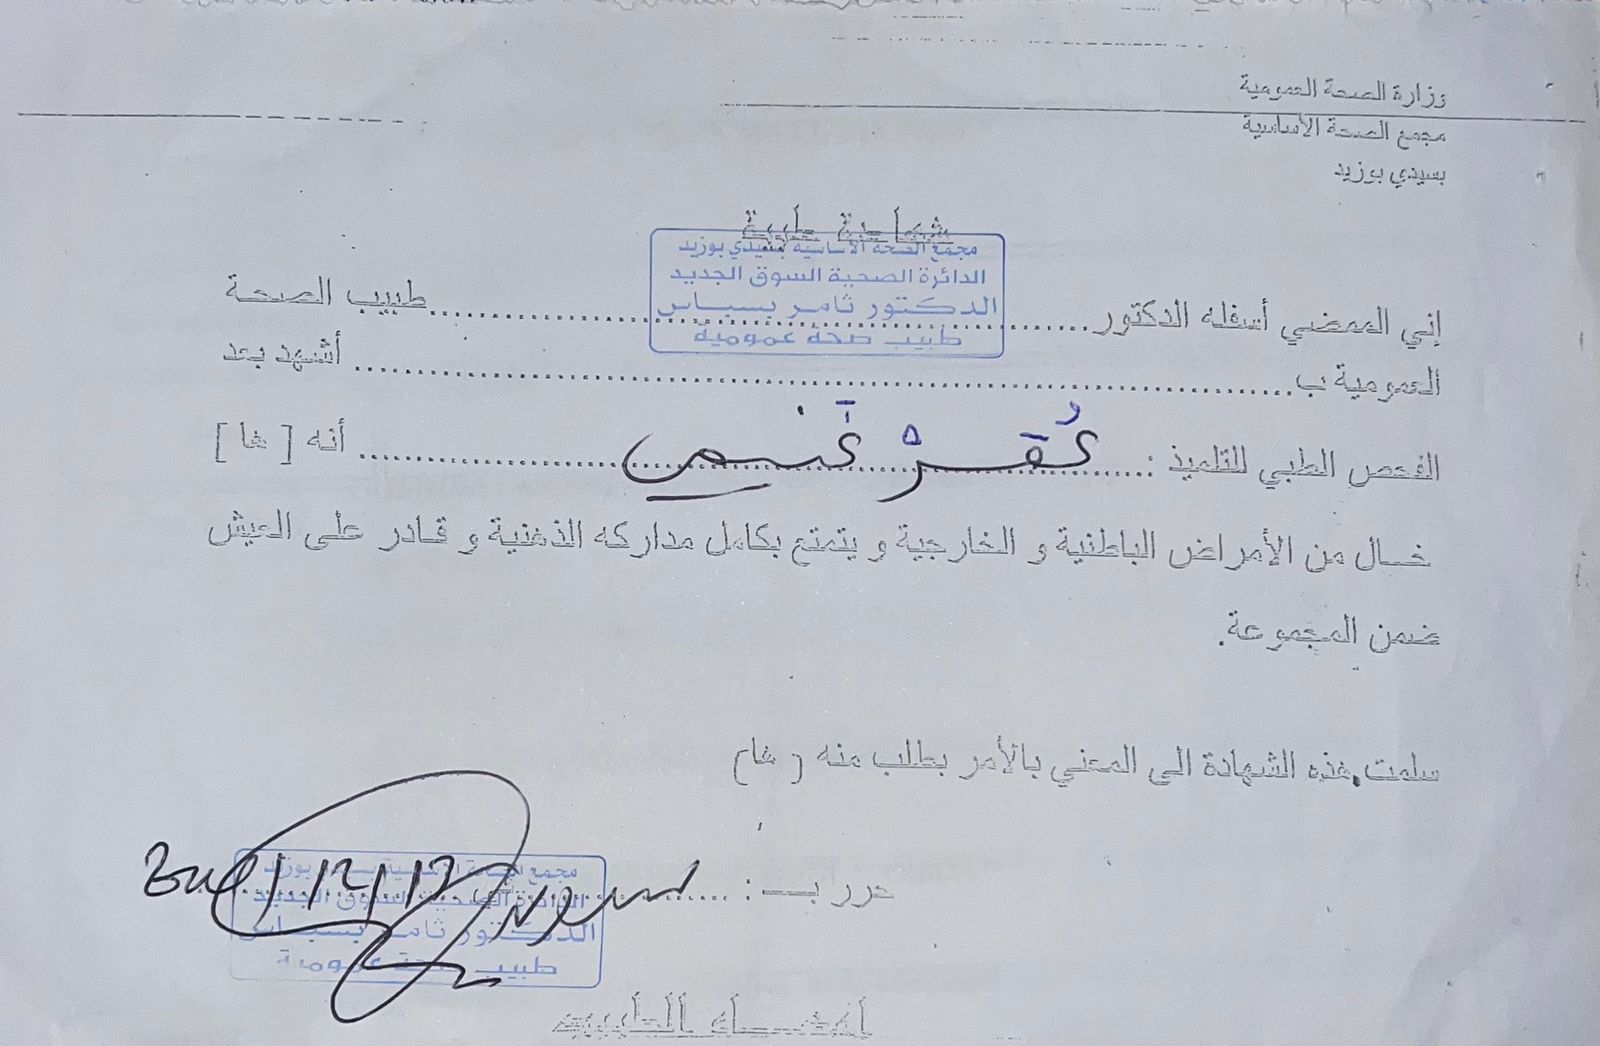 وزارة الصحة العمومية
مجمع الصحة الأساسية
بسيدي بوزيد
شهادة طبية
مجمع الصحة الأساسية بسيدي بوزيد
الدائرة الصحية السوق الجديد
الدكتور ثامر بسباس
طبيب صحة عمومية
إني الممضي أسفله الدكتور .......... طبيب الصحة
العمومية ب .......... أشهد بعد
الفحص الطبي للتلميذ : .......... أنه [ ها ]
خال من الأمراض الباطنية و الخارجية و يتمتع بكامل مداركه الذهنية و قادر على العيش
ضمن المجموعة.
سلمت هذه الشهادة الى المعني بالأمر بطلب منه ( ها)
حرر بـ : ..........
مجمع الصحة الأساسية بسيدي بوزيد
الدائرة الصحية السوق الجديد
الدكتور ثامر بسباس
طبيب صحة عمومية
إمضاء الطبيب